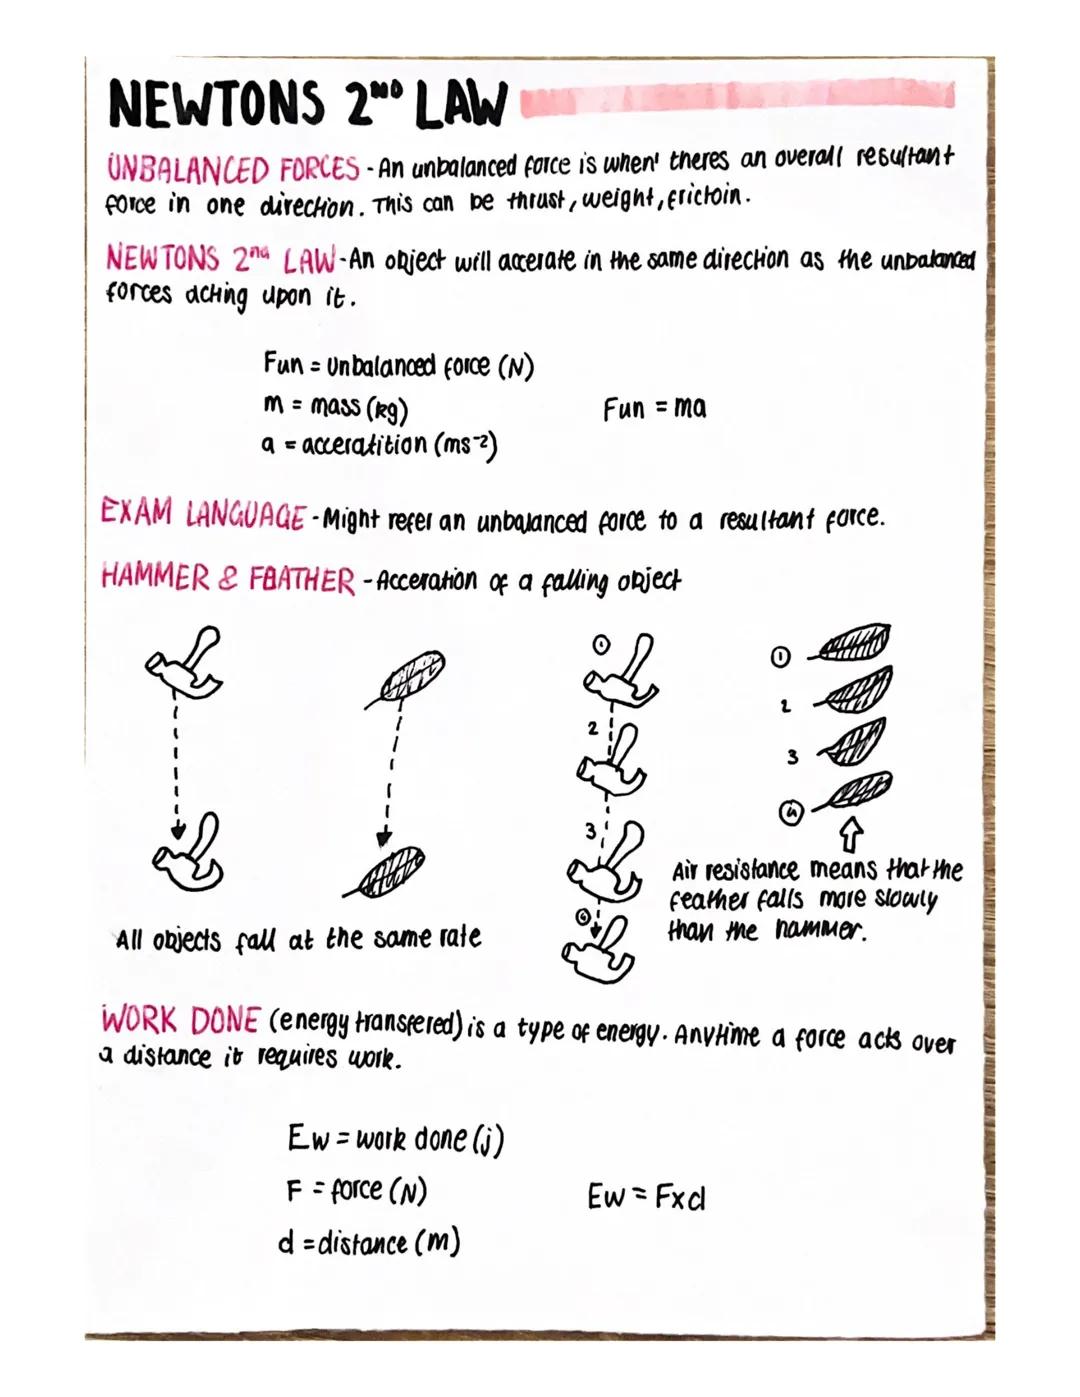 NEWTONS 2ND LAW
UNBALANCED FORCES - An unbalanced force is when' theres an overall resultant
force in one direction. This can be thrust, weight, frictoin.
NEWTONS 2nd LAW - An object will accerate in the same direction as the unbalanced
forces acting upon it.
Fun = Unbalanced force (N)
m = mass (kg)
Fun = ma
a = acceratition (ms-2)
EXAM LANGUAGE - Might refer an unbalanced force to a resultant force.
HAMMER & FEATHER - Acceration of a falling object
1
2
3
4
1
2
3
4
Air resistance means that the
feather falls more slowly
than the hammer.
All objects fall at the same rate
WORK DONE (energy transfered) is a type of energy. Anytime a force acts over
a distance it requires work.
Ew = work done (j)
F = force (N)
Ew = Fxd
d = distance (m)